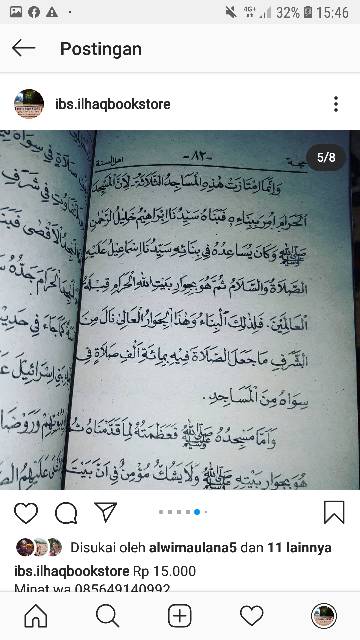 32% 15:46
Postingan
ibs.ilhaqbookstore
5/8
-٨٢-
وَإِنَّمَا امْتَازَتْ هٰذِهِ الْمَسَاجِدُ الثَّلَاثَةُ لِأَنَّ الْمَسْجِدَ
الْحَرَامَ أُمِرَ بِبِنَاءِهِ، فَبَنَاهُ سَيِّدُنَا إِبْرَاهِيْمُ خَلِيْلُ الرَّحْمٰنِ
ﷺ وَكَانَ يُسَاعِدُهُ فِي بِنَائِهِ سَيِّدُنَا إِسْمَاعِيْلُ عَلَيْهِ
الصَّلَاةُ وَالسَّلَامُ ثُمَّ هُوَ بِجِوَارِ بَيْتِ اللهِ الْحَرَامِ قِبْلَةُ
الْعَالَمِيْنَ. فَلِذٰلِكَ الْبِنَاءِ وَهٰذَا الْجِوَارِ الْعَالِي نَالَ مِنَ
الشَّرَفِ مَا جَعَلَ الصَّلَاةَ فِيْهِ بِمِائَةِ أَلْفِ صَلَاةٍ فِي
سِوَاهُ مِنَ الْمَسَاجِدِ.
وَأَمَّا مَسْجِدُهُ ﷺ فَعَظَمَتُهُ لِمَا قَدَّمْنَاهُ
هُوَ بِجِوَارِ بَيْتِهِ ﷺ وَلَا يَشُكُّ مُؤْمِنٌ فِي أَنَّ بَيْتَ
Disukai oleh alwimaulana5 dan 11 lainnya
ibs.ilhaqbookstore Rp 15.000
Minat wa 085649140992